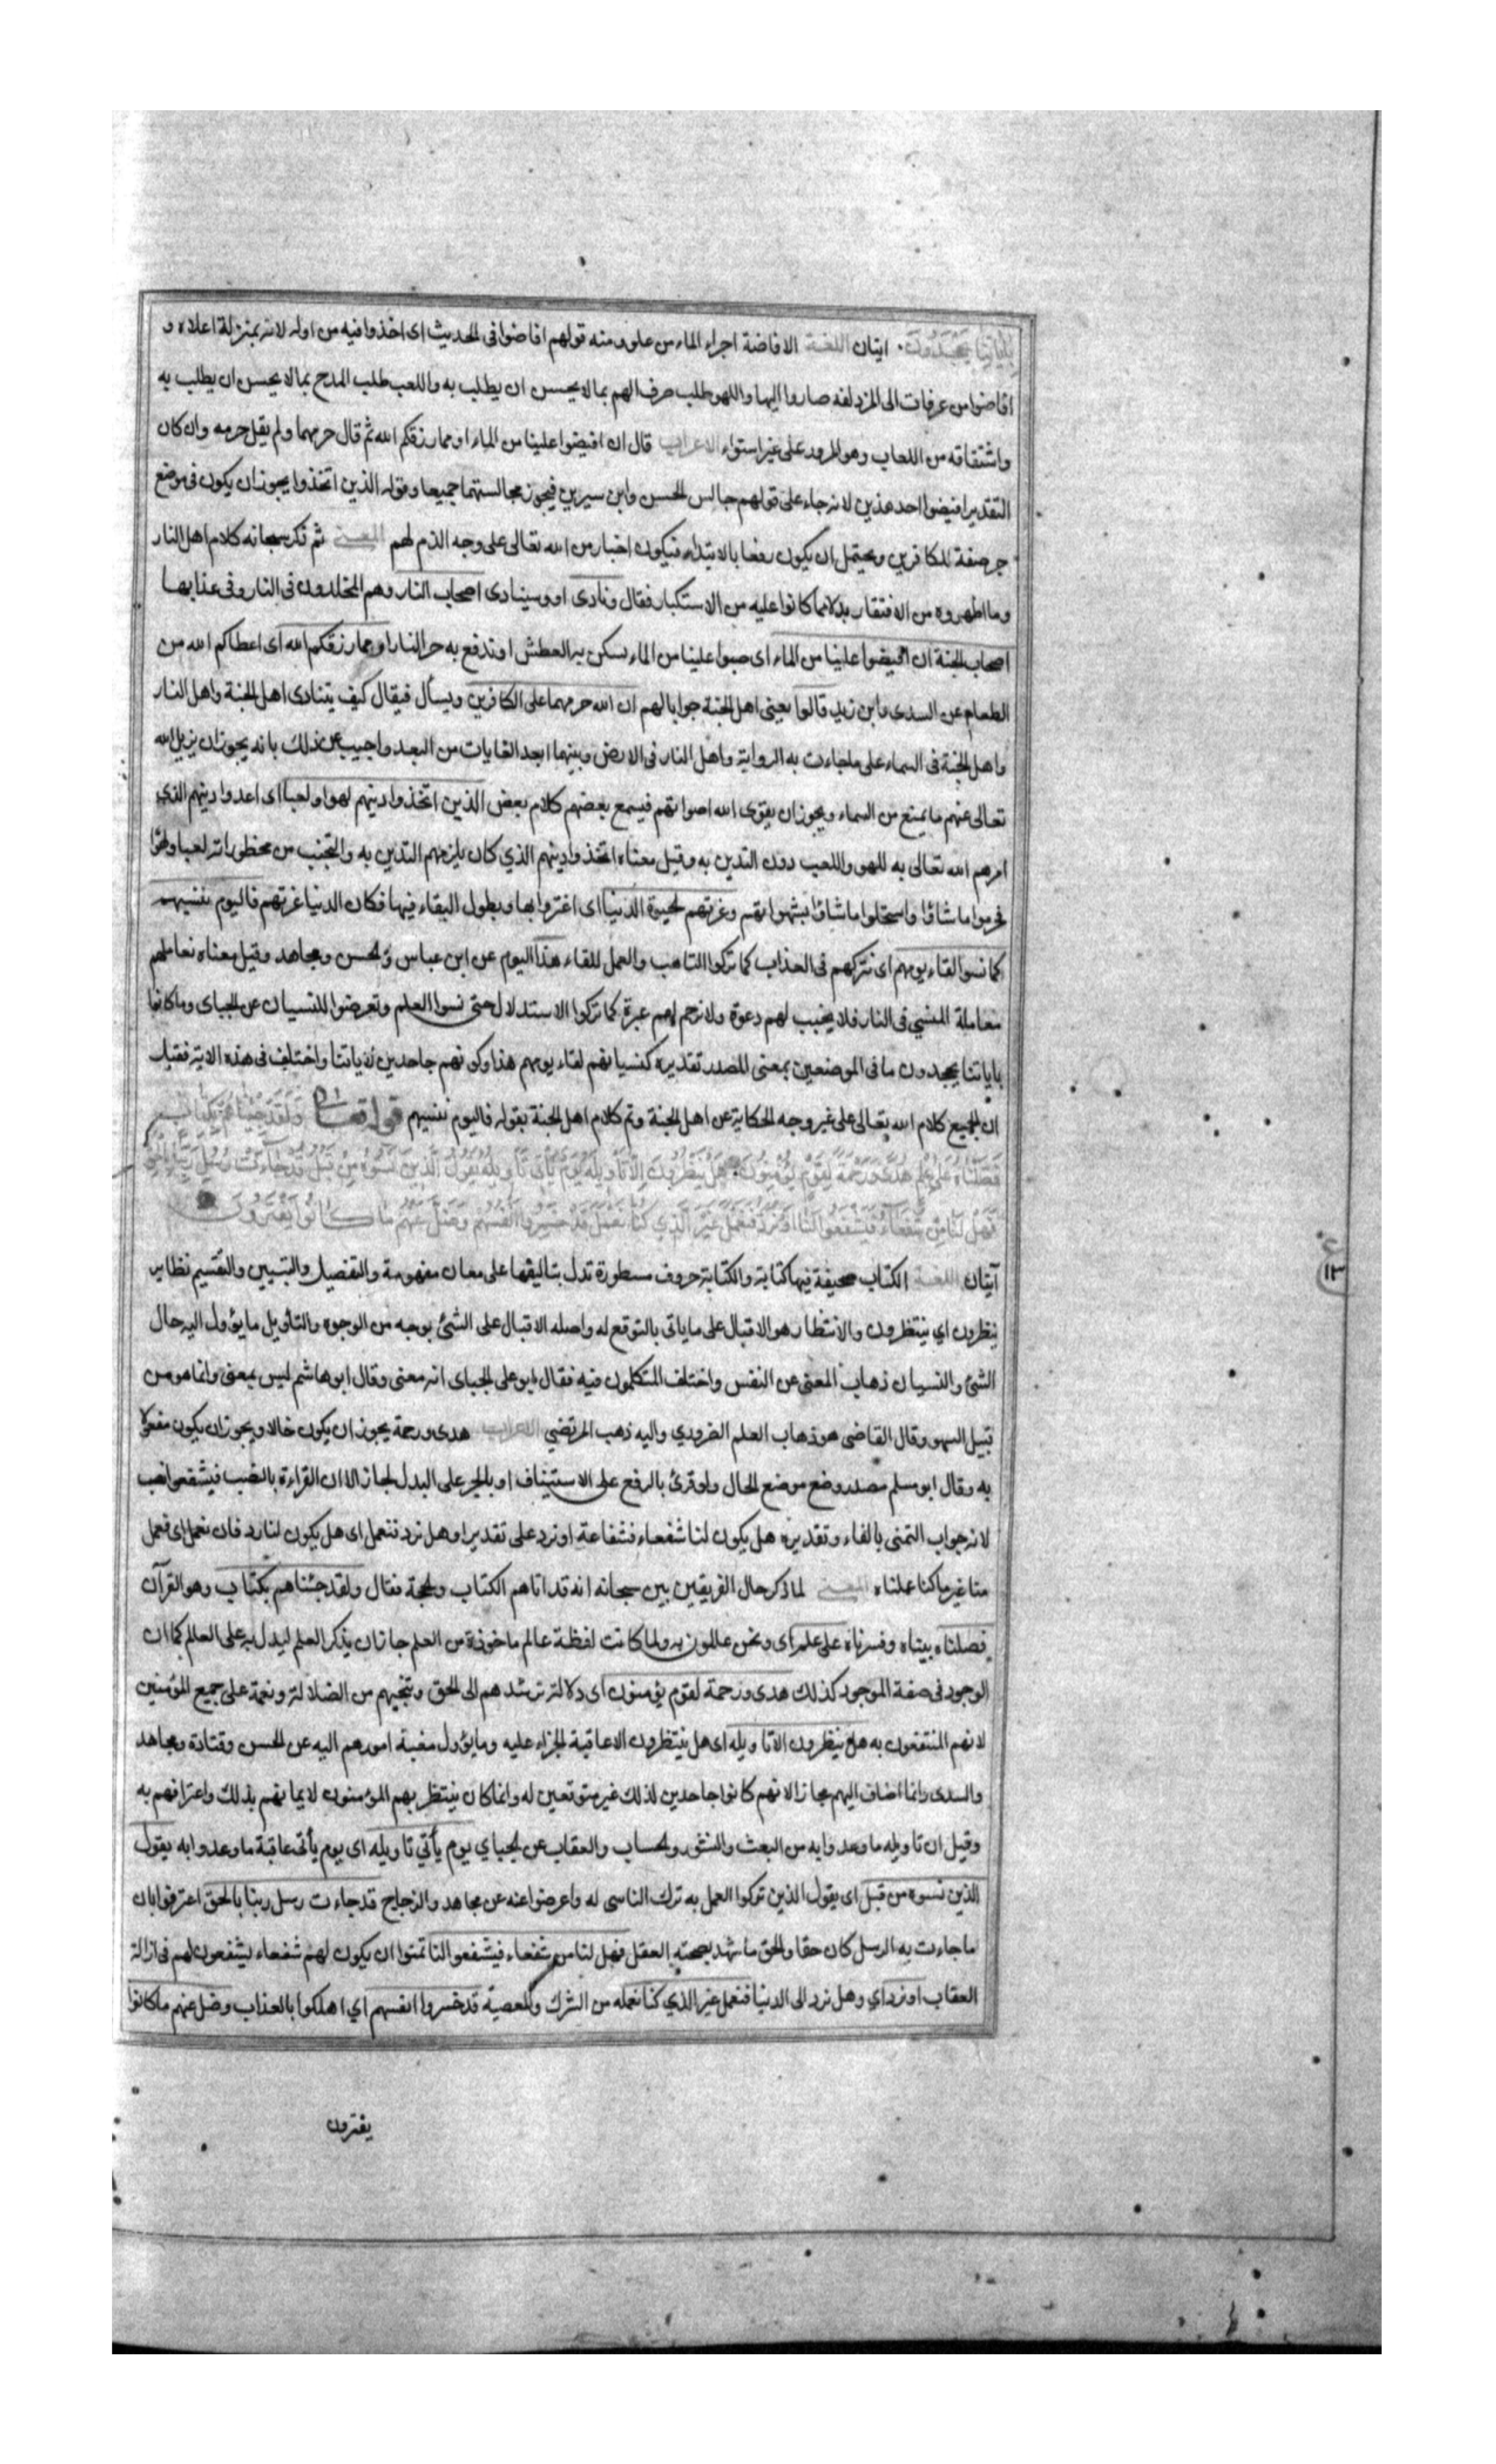 باياتنا يجحدون. ايتان اللغة الافاضة اجراء الماء من علو ومنه قولهم افاضوا فى الحديث اى اخذوا فيه من اوله لانه بمنزلة اعلاه و
افاضوا من عرفات الى المزدلفه صاروا اليها واللهو طلب صرف الهم بما لا يحسن ان يطلب به واللعب طلب المدح بما لا يحسن ان يطلب به
واشتقاقه من اللعاب وهو المرور على غير استواء الاعراب قال ان افيضوا علينا من الماء او مما رزقكم الله ثم قال حرمهما ولم يقل حرمه وان كان
التقدير افيضوا احد هذين لانه جاء على قولهم جالس الحسن وابن سيرين فيجوز مجالستهما جميعا وقوله الذين اتخذوا يجوز ان يكون فى موضع
جر صفة للكافرين ويحتمل ان يكون رفعا بالابتداء فيكون اخبار من الله تعالى على وجه الذم لهم المعنى ثم ذكر سبحانه كلام اهل النار
وما اظهروه من الافتقار بدلا مما كانوا عليه من الاستكبار فقال ونادى او وسينادى اصحاب النار وهم المخلدون فى النار وفى عذابها
اصحاب الجنة ان افيضوا علينا من الماء اى صبوا علينا من الماء نسكن به العطش او ندفع به حر النار او مما رزقكم الله اى اعطاكم الله من
الطعام عن السدى وابن زيد قالوا يعنى اهل الجنة جوابا لهم ان الله حرمهما على الكافرين ويسأل فيقال كيف يتنادى اهل الجنة واهل النار
واهل الجنة فى السماء على ما جاءت به الرواية واهل النار فى الارض وبينهما ابعد الغايات من البعد واجيب عن ذلك بانه يجوز ان يزيل الله
تعالى عنهم ما يمنع من السماء ويجوز ان يقوى الله اصواتهم فيسمع بعضهم كلام بعض الذين اتخذوا دينهم لهوا ولعبا اى اعدوا دينهم الذي
امرهم الله تعالى به للهو واللعب دون التدين به وقيل معناه اتخذوا دينهم الذي كان يلزمهم التدين به والتجنب من محظوراته لعبا ولهوا
فحرموا ما شاؤا واستحلوا ما شاؤا بشهواتهم وغرتهم الحيوة الدنيا اى اغتروا بها وبطول البقاء فيها فكان الدنيا غرتهم فاليوم ننسيهم
كما نسوا لقاء يومهم اى نتركهم فى العذاب كما تركوا التاهب والعمل للقاء هذا اليوم عن ابن عباس والحسن ومجاهد وقيل معناه نعاملهم
معاملة المنسي فى النار فلا يجيب لهم دعوة ولا نرحم لهم عبرة كما تركوا الاستدلال حتى نسوا العلم وتعرضوا للنسيان عن الجباى وما كانوا
باياتنا يجحدون ما فى الموضعين بمعنى المصدر تقديره كنسيانهم لقاء يومهم هذا وكونهم جاحدين لاياتنا واختلف فى هذه الاية فقيل
ان الجميع كلام الله تعالى على غير وجه الحكاية عن اهل الجنة وتم كلام اهل الجنة بقوله فاليوم ننسيهم قوله تعالى ولقد جئناهم بكتاب
فصلناه على علم هدى ورحمة لقوم يؤمنون. هل ينظرون الا تاويله يوم يأتى تاويله يقول الذين نسوه من قبل قد جاءت رسل ربنا بالحق
فهل لنا من شفعاء فيشفعوا لنا او نرد فنعمل غير الذي كنا نعمل قد خسروا انفسهم وضل عنهم ما كانوا يفترون
آيتان اللغة الكتاب صحيفة فيها كتابة والكتابة حروف مسطورة تدل بتاليفها على معان مفهومة والتفصيل والتبيين والتقسيم نظاير
ينظرون اي ينتظرون والانتظار هو الاقبال على ما ياتى بالتوقع له واصله الاقبال على الشئ بوجه من الوجوه والتأويل ما يؤول اليه حال
الشئ والنسيان ذهاب المعنى عن النفس واختلف المتكلمون فيه فقال ابو على الجباى انه معنى وقال ابو هاشم ليس بمعنى وانما هو من
قبيل السهو وقال القاضى هو ذهاب العلم الضرورى واليه ذهب المرتضي الاعراب هدى ورحمة يجوز ان يكون حالا ويجوز ان يكون مفعولا
به وقال ابو مسلم مصدر وضع موضع الحال ولو قرئ بالرفع على الاستيناف او بالجر على البدل لجاز الا ان القراءة بالنصب فيشفعوا نصب
لانه جواب التمنى بالفاء وتقديره هل يكون لنا شفعاء فشفاعة او نرد على تقدير او هل نرد فنعمل اى هل يكون لنا رد فان نعمل اى فعمل
منا غير ما كنا عملناه المعنى لما ذكر حال الفريقين بين سبحانه انه قد اتاهم الكتاب والحجة فقال ولقد جئناهم بكتاب وهو القرآن
فصلناه بيناه وفسرناه على علم اى ونحن عالمون به ولما كانت لفظة عالم ماخوذة من العلم جاز ان يذكر العلم ليدل به على العالم كما ان
الوجود فى صفة الموجود كذلك هدى ورحمة لقوم يؤمنون اى دلالة ترشدهم الى الحق وتنجيهم من الضلالة ونعمة على جميع المؤمنين
لانهم المنتفعون به هل ينظرون الا تاويله اى هل ينتظرون الا عاقبة الجزاء عليه وما يؤول مغبة امورهم اليه عن الحسن وقتادة ومجاهد
والسدى وانما اضاف اليهم مجازا لانهم كانوا جاحدين لذلك غير متوقعين له وانما كان ينتظر بهم المؤمنون لايمانهم بذلك واعترافهم به
وقيل ان تاويله ما وعدوا به من البعث والنشور والحساب والعقاب عن الجباي يوم يأتي تاويله اى يوم يأتى عاقبة ما وعدوا به يقول
الذين نسوه من قبل اى يقول الذين تركوا العمل به ترك الناسى له واعرضوا عنه عن مجاهد والزجاج قد جاءت رسل ربنا بالحق اعترفوا بان
ما جاءت به الرسل كان حقا والحق ما شهد بصحته العقل فهل لنا من شفعاء فيشفعوا لنا تمنوا ان يكون لهم شفعاء ليشفعون لهم فى ازالة
العقاب او نرد اي وهل نرد الى الدنيا فنعمل غير الذي كنا نعمله من الشرك والمعصية قد خسروا انفسهم اي اهلكوا بالعذاب وضل عنهم ما كانوا
يفترون